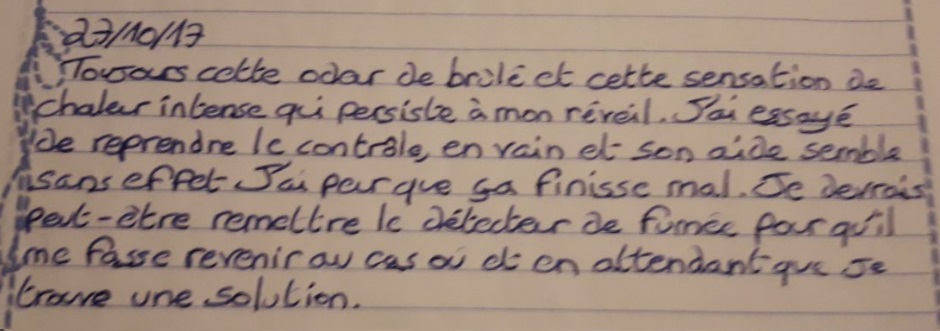 27/10/17
Toujours cette odeur de brûlé et cette sensation de
chaleur intense qui persiste à mon réveil. J'ai essayé
de reprendre le contrôle, en vain et son aide semble
sans effet. J'ai peur que ça finisse mal. Je devrais
peut-être remettre le détecteur de fumée pour qu'il
me fasse revenir au cas où et en attendant que je
trouve une solution.